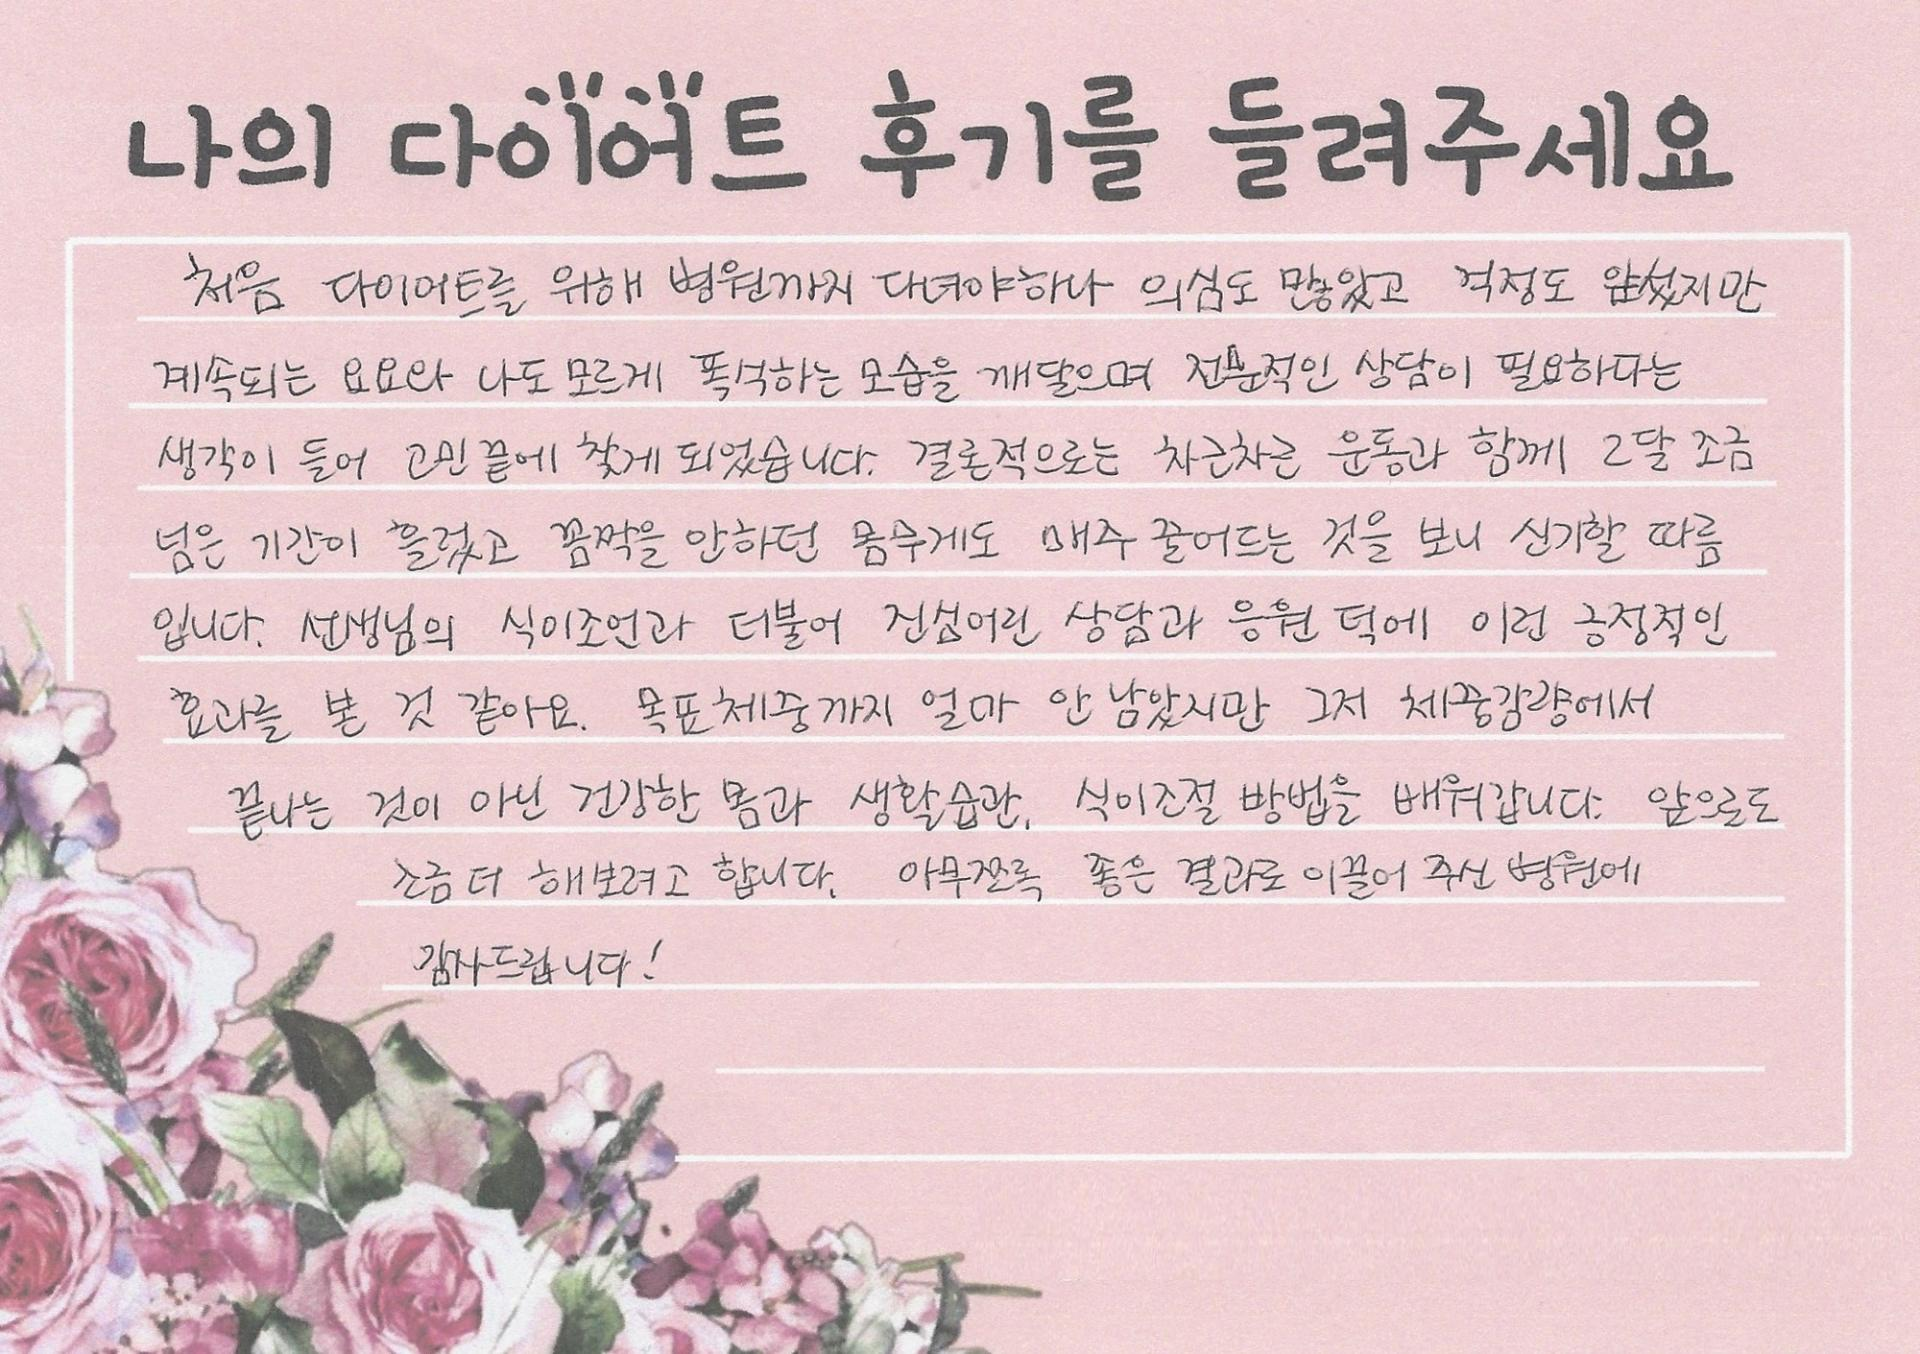 나의 다이어트 후기를 들려주세요
처음 다이어트를 위해 병원까지 다녀야하나 의심도 많았고 걱정도 앞섰지만
계속되는 요요와 나도 모르게 폭식하는 모습을 깨달으며 전문적인 상담이 필요하다는
생각이 들어 고민 끝에 찾게 되었습니다. 결론적으로는 차근차근 운동과 함께 2달 조금
넘은 기간이 흘렀고 꼼짝을 안하던 몸무게도 매주 줄어드는 것을 보니 신기할 따름
입니다. 선생님의 식이조언과 더불어 진심어린 상담과 응원 덕에 이런 긍정적인
효과를 본 것 같아요. 목표체중까지 얼마 안 남았지만 그저 체중감량에서
끝나는 것이 아닌 건강한 몸과 생활습관, 식이조절 방법을 배워갑니다. 앞으로도
조금 더 해보려고 합니다. 아무쪼록 좋은 결과로 이끌어 주신 병원에
감사드립니다!